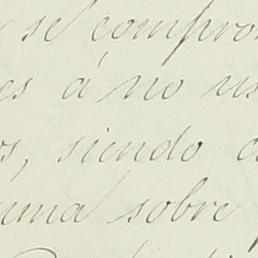 se compro
es á no us
s, siendo
uma sobre